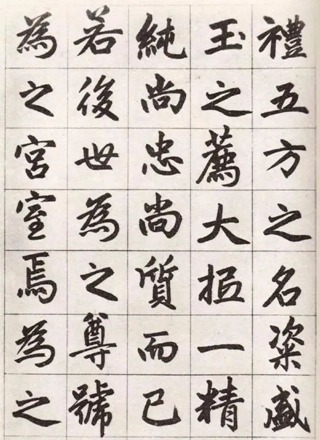 禮五方之名粢盛
玉之薦大抵一精
純尚忠尚質而已
若後世為之尊號
為之宮室焉為之